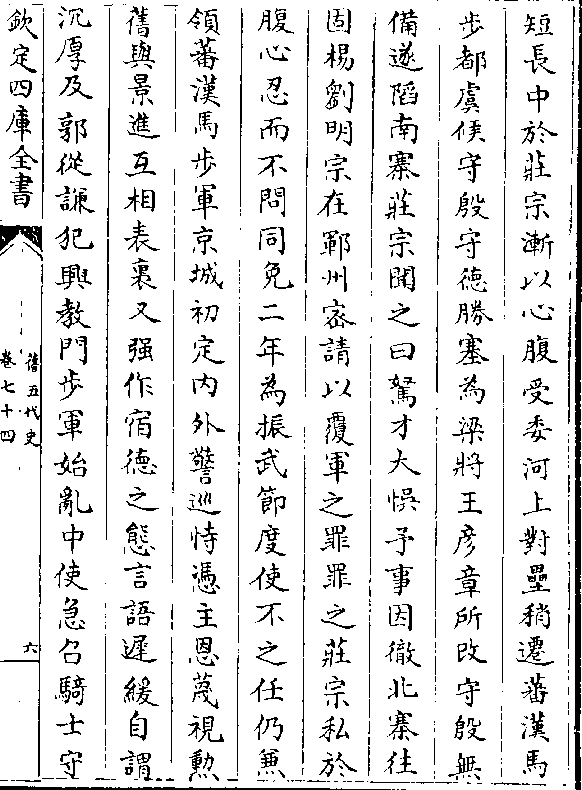 短長中於莊宗漸以心腹受委河上對壘稍遷蕃漢馬
步都虞侯守殷守德勝寨為梁將王彦章所攻守殷無
備遂䧟南寨莊宗聞之曰駑才大悞予事因徹北寨往
固楊劉明宗在鄆州密請以覆軍之罪罪之莊宗私於
腹心忍而不問同免二年為振武節度使不之任仍兼
領蕃漢馬步軍京城初定内外警巡恃憑主恩蔑視勲
舊與景進互相表裏又强作宿德之態言語遲緩自謂
沉厚及郭從謙犯興教門步軍始亂中使急召騎士守
欽定四庫全書
舊五代史
卷七十四
六